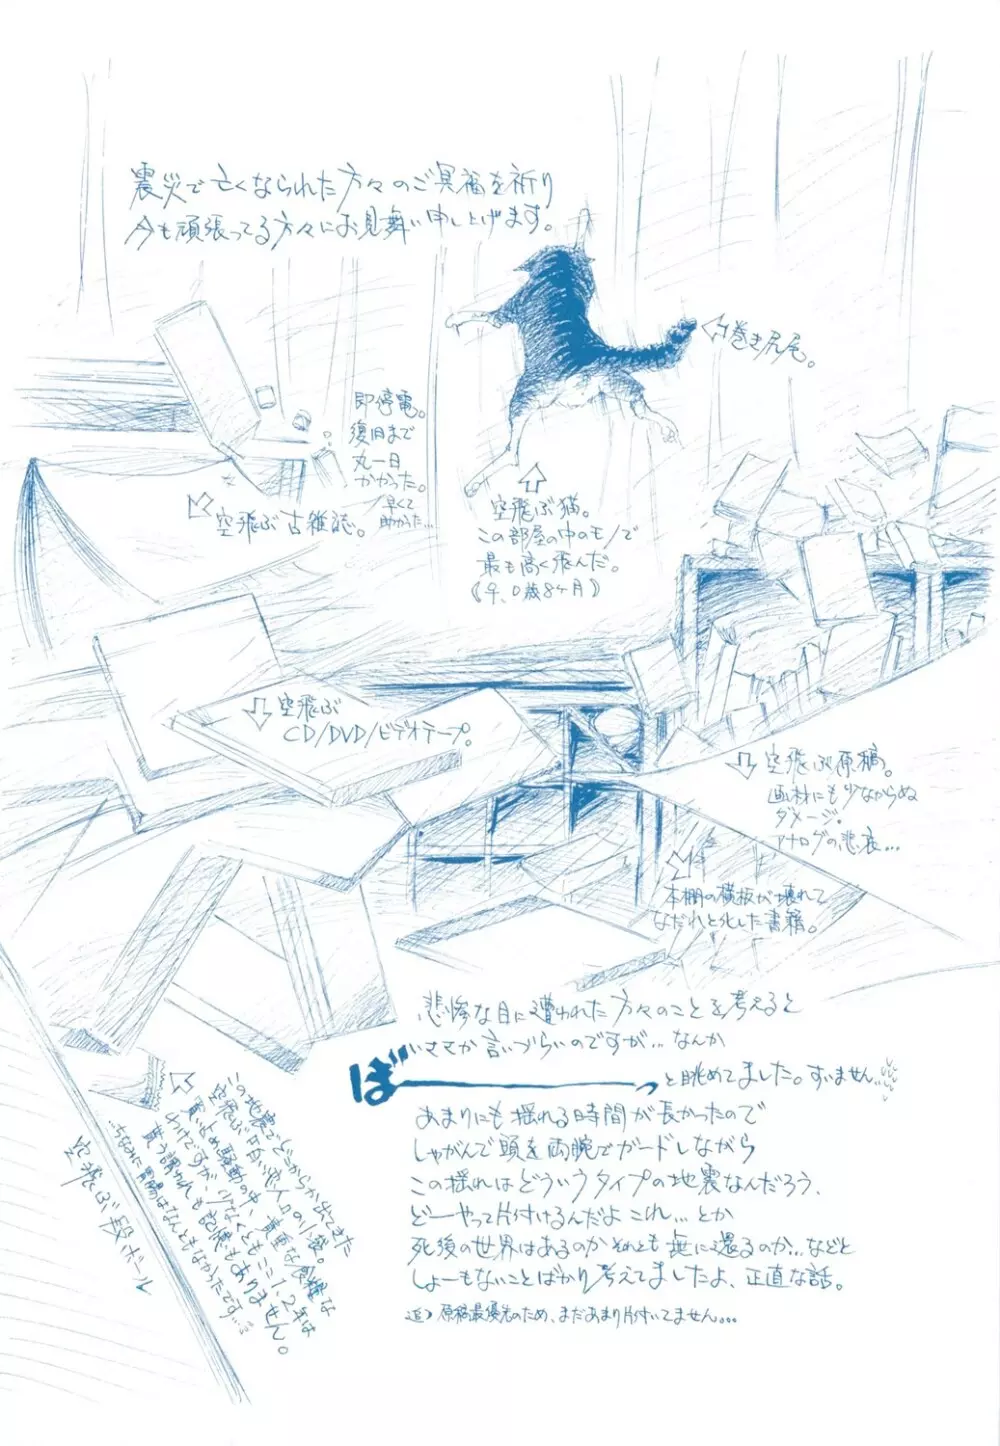 震災で亡くなられた方々のご冥福を祈り
今も頑張ってる方々にお見舞い申し上げます。
⇦巻き尻尾。
即停電。
復旧まで
丸一日
かかった。
早くて
助かった…
空飛ぶ古雑誌。
空飛ぶ猫。
この部屋の中のモノで
最も高く飛んだ。
《♀、0歳8ヶ月》
空飛ぶ
CD/DVD/ビデオテープ。
空飛ぶ原稿。
画材にも少なからぬ
ダメージ。
アナログの悲哀…
本棚の横板が壊れて
なだれと化した書籍。
悲惨な目に遭われた方々のことを考えると
いささか言いづらいのですが…なんか
ぼーーっと眺めてました。すいません…
あまりにも揺れる時間が長かったので
しゃがんで頭を両腕でガードしながら
この揺れはどういうタイプの地震なんだろう、
どーやって片付けるんだよこれ…とか
死後の世界はあるのかそれとも無に還るのか…などと
しょーもないことばかり考えてましたよ、正直な話。
追)原稿最優先のため、まだあまり片付いてません…
この地震でどこからか出てきた
空飛ぶ白い恋人の小袋。
買い占め騒動の中、貴重な食糧な
わけですが、少なくともここ1、2年は
貰う謂われも記憶もありません。
…ちなみに胃腸はなんともなかったです…
空飛ぶ段ボール